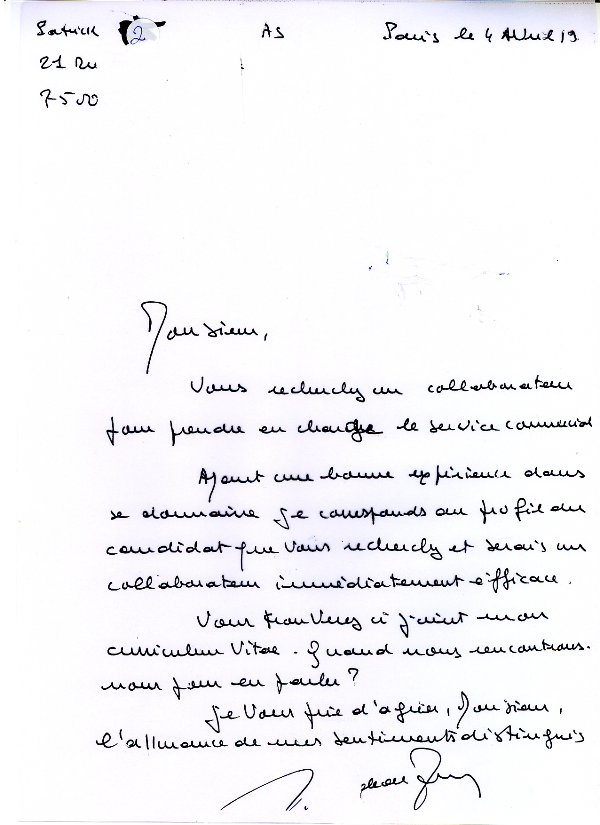 Patrick 2 AS Paris le 4 Avril 19
21 Ru
7500
Monsieur,
Vous recherchez un collaborateur
pour prendre en charge le service commercial
Ayant une bonne expérience dans
se domaine je corresponds au profil du
candidat que vous recherchez et serais un
collaborateur immédiatement efficace.
Vous trouverez ci joint mon
curriculum vitae. Quand nous rencontrons-
nous pour en parler?
Je vous prie d'agréer, Monsieur,
l'assurance de mes sentiments distingués